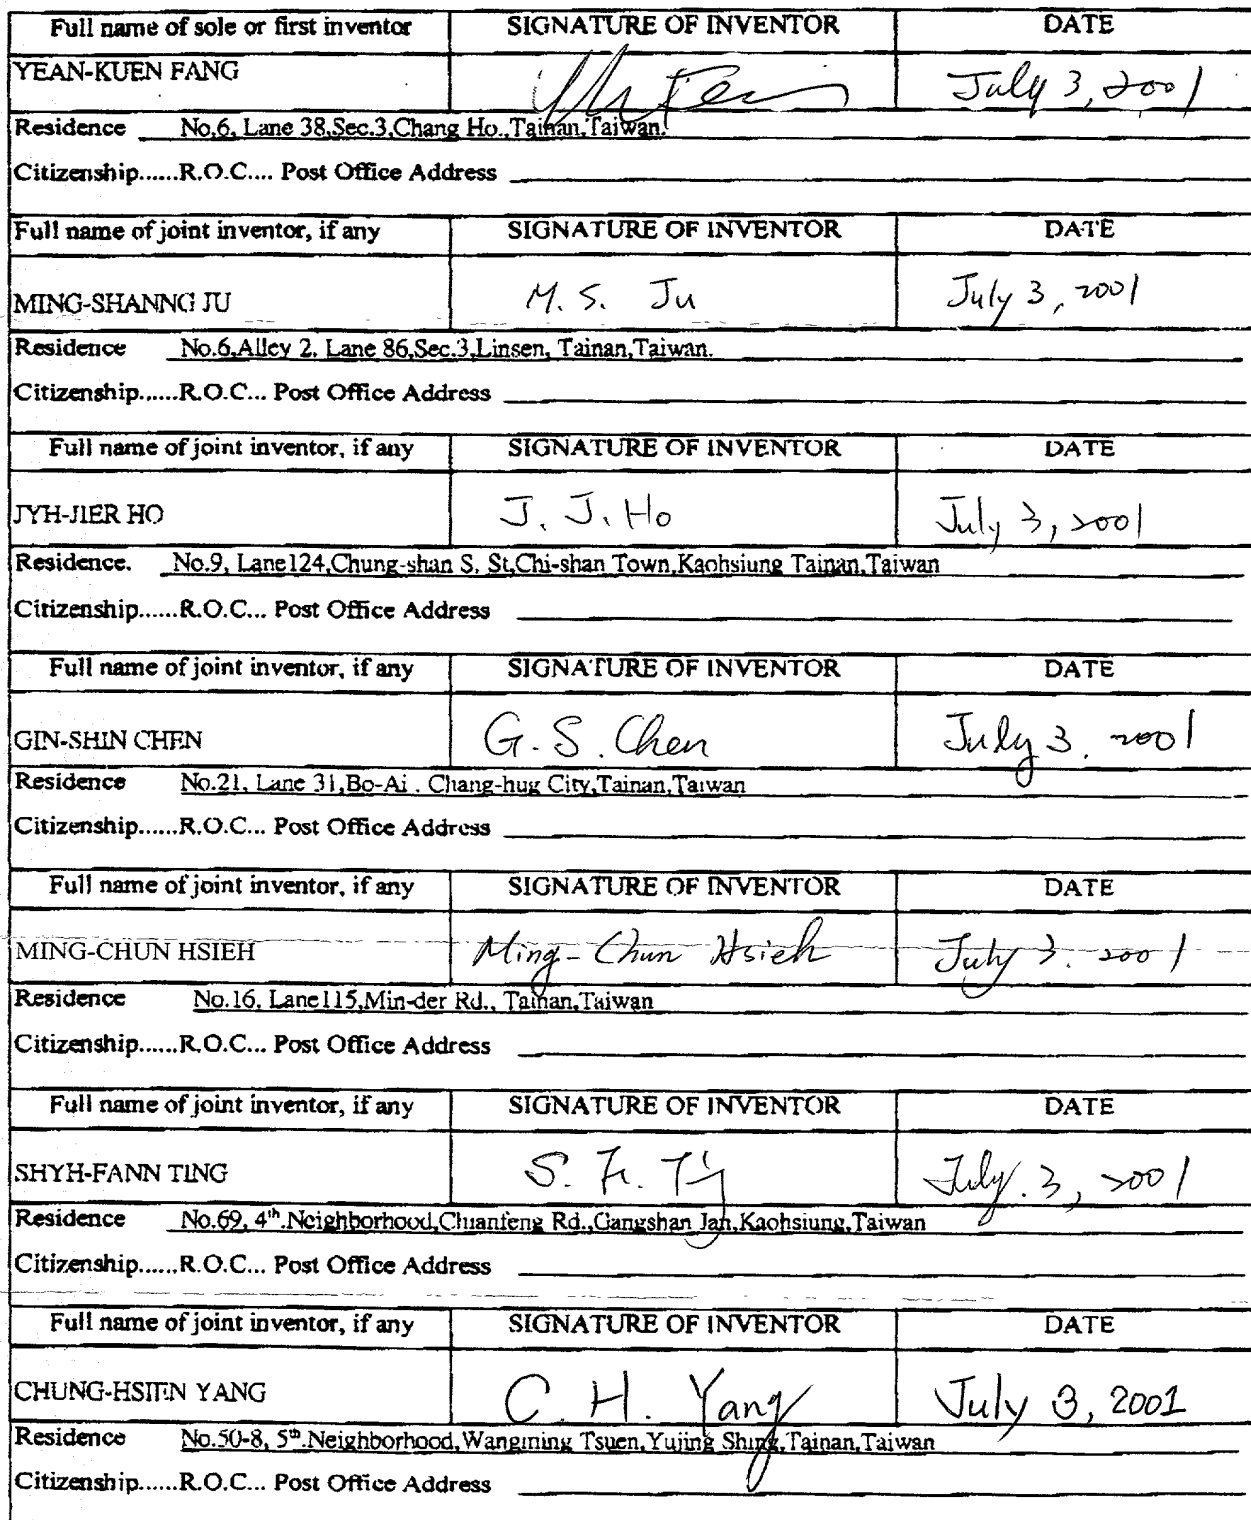 Full name of sole or first inventor SIGNATURE OF INVENTOR DATE
YEAN-KUEN FANG July 3, 2001
Residence No,6, Lane 38,Sec.3,Chang Ho.,Tainan,Taiwan.
Citizenship......R.O.C.... Post Office Address
Full name of joint inventor, if any SIGNATURE OF INVENTOR DATE
MING-SHANNG JU M. S. Ju July 3, 2001
Residence No.6,Alley 2, Lane 86,Sec.3,Linsen, Tainan,Taiwan.
Citizenship......R.O.C... Post Office Address
Full name of joint inventor, if any SIGNATURE OF INVENTOR DATE
JYH-JIER HO J. J. Ho July 3, 2001
Residence. No.9, Lane124,Chung-shan S, St,Chi-shan Town,Kaohsiung Tainan,Taiwan
Citizenship......R.O.C... Post Office Address
Full name of joint inventor, if any SIGNATURE OF INVENTOR DATE
GIN-SHIN CHEN G. S. Chen July 3. 2001
Residence No.21, Lane 31,Bo-Ai . Chang-hug City,Tainan,Taiwan
Citizenship......R.O.C... Post Office Address
Full name of joint inventor, if any SIGNATURE OF INVENTOR DATE
MING-CHUN HSIEH Ming-Chun Hsieh July 3. 2001
Residence No.16, Lane115,Min-der Rd., Tainan,Taiwan
Citizenship......R.O.C... Post Office Address
Full name of joint inventor, if any SIGNATURE OF INVENTOR DATE
SHYH-FANN TING S. F. July. 3, 2001
Residence No.69, 4th.Neighborhood,Chianfeng Rd.,Gangshan Jan,Kaohsiung,Taiwan
Citizenship......R.O.C... Post Office Address
Full name of joint inventor, if any SIGNATURE OF INVENTOR DATE
CHUNG-HSIEN YANG C. H. Yang July 3, 2001
Residence No.50-8, 5th.Neighborhood,Wangming Tsuen,Yujing Shing,Tainan,Taiwan
Citizenship......R.O.C... Post Office Address